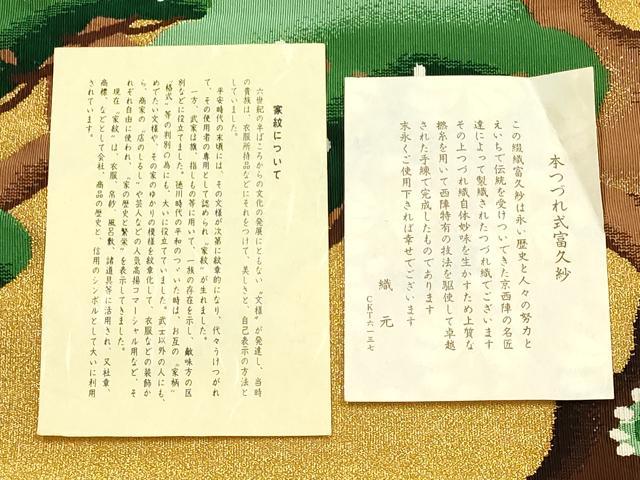 本つづれ式富久紗
この綴織富久紗は永い歴史と人々の努力と
えいちで伝統を受けついできた京西陣の名匠
達によって製織されたつづれ織でございます
その上つづれ織自体妙味を生かすため上質な
撚糸を用いて西陣特有の技法を駆使して卓越
された手練で完成したものであります
末永くご使用下されば幸せでございます
織元
CKT六一三七
家紋について
六世紀の半ばころからの文化の発展にともない〝文様〟が発達し、当時
の貴族は、衣服所持品などにそれをつけて、美しさと、自己表示の方法と
していました。
平安時代の末頃には、その文様が次第に紋章的になり、代々うけつがれ
て、その使用者の専用として認められ〝家紋〟が生れました。
一方、武家は旗、指しもの等に用いて、一族の存在を示し、敵味方の区
別などに役立てました。徳川時代の平和のつゞいた時は、お互の〝家柄〟
〝格式〟等の判別の為にも、大いに役立てていました。武士以外の人にも、
めでたい文様や、その家のゆかりの模様を紋章化して、衣服などの装飾か
ら、商家の〝店のしるし〟や芸人などの人気高揚コマーシャル用など、そ
れぞれ自由に使われ、〝家の歴史と繁栄〟を表示してきました。
現在〝家紋〟は、衣服、帛紗、風呂敷、諸道具等に活用され、又社章、
商標、などとして会社、商品の歴史と、信用のシンボルとして大いに利用
されています。